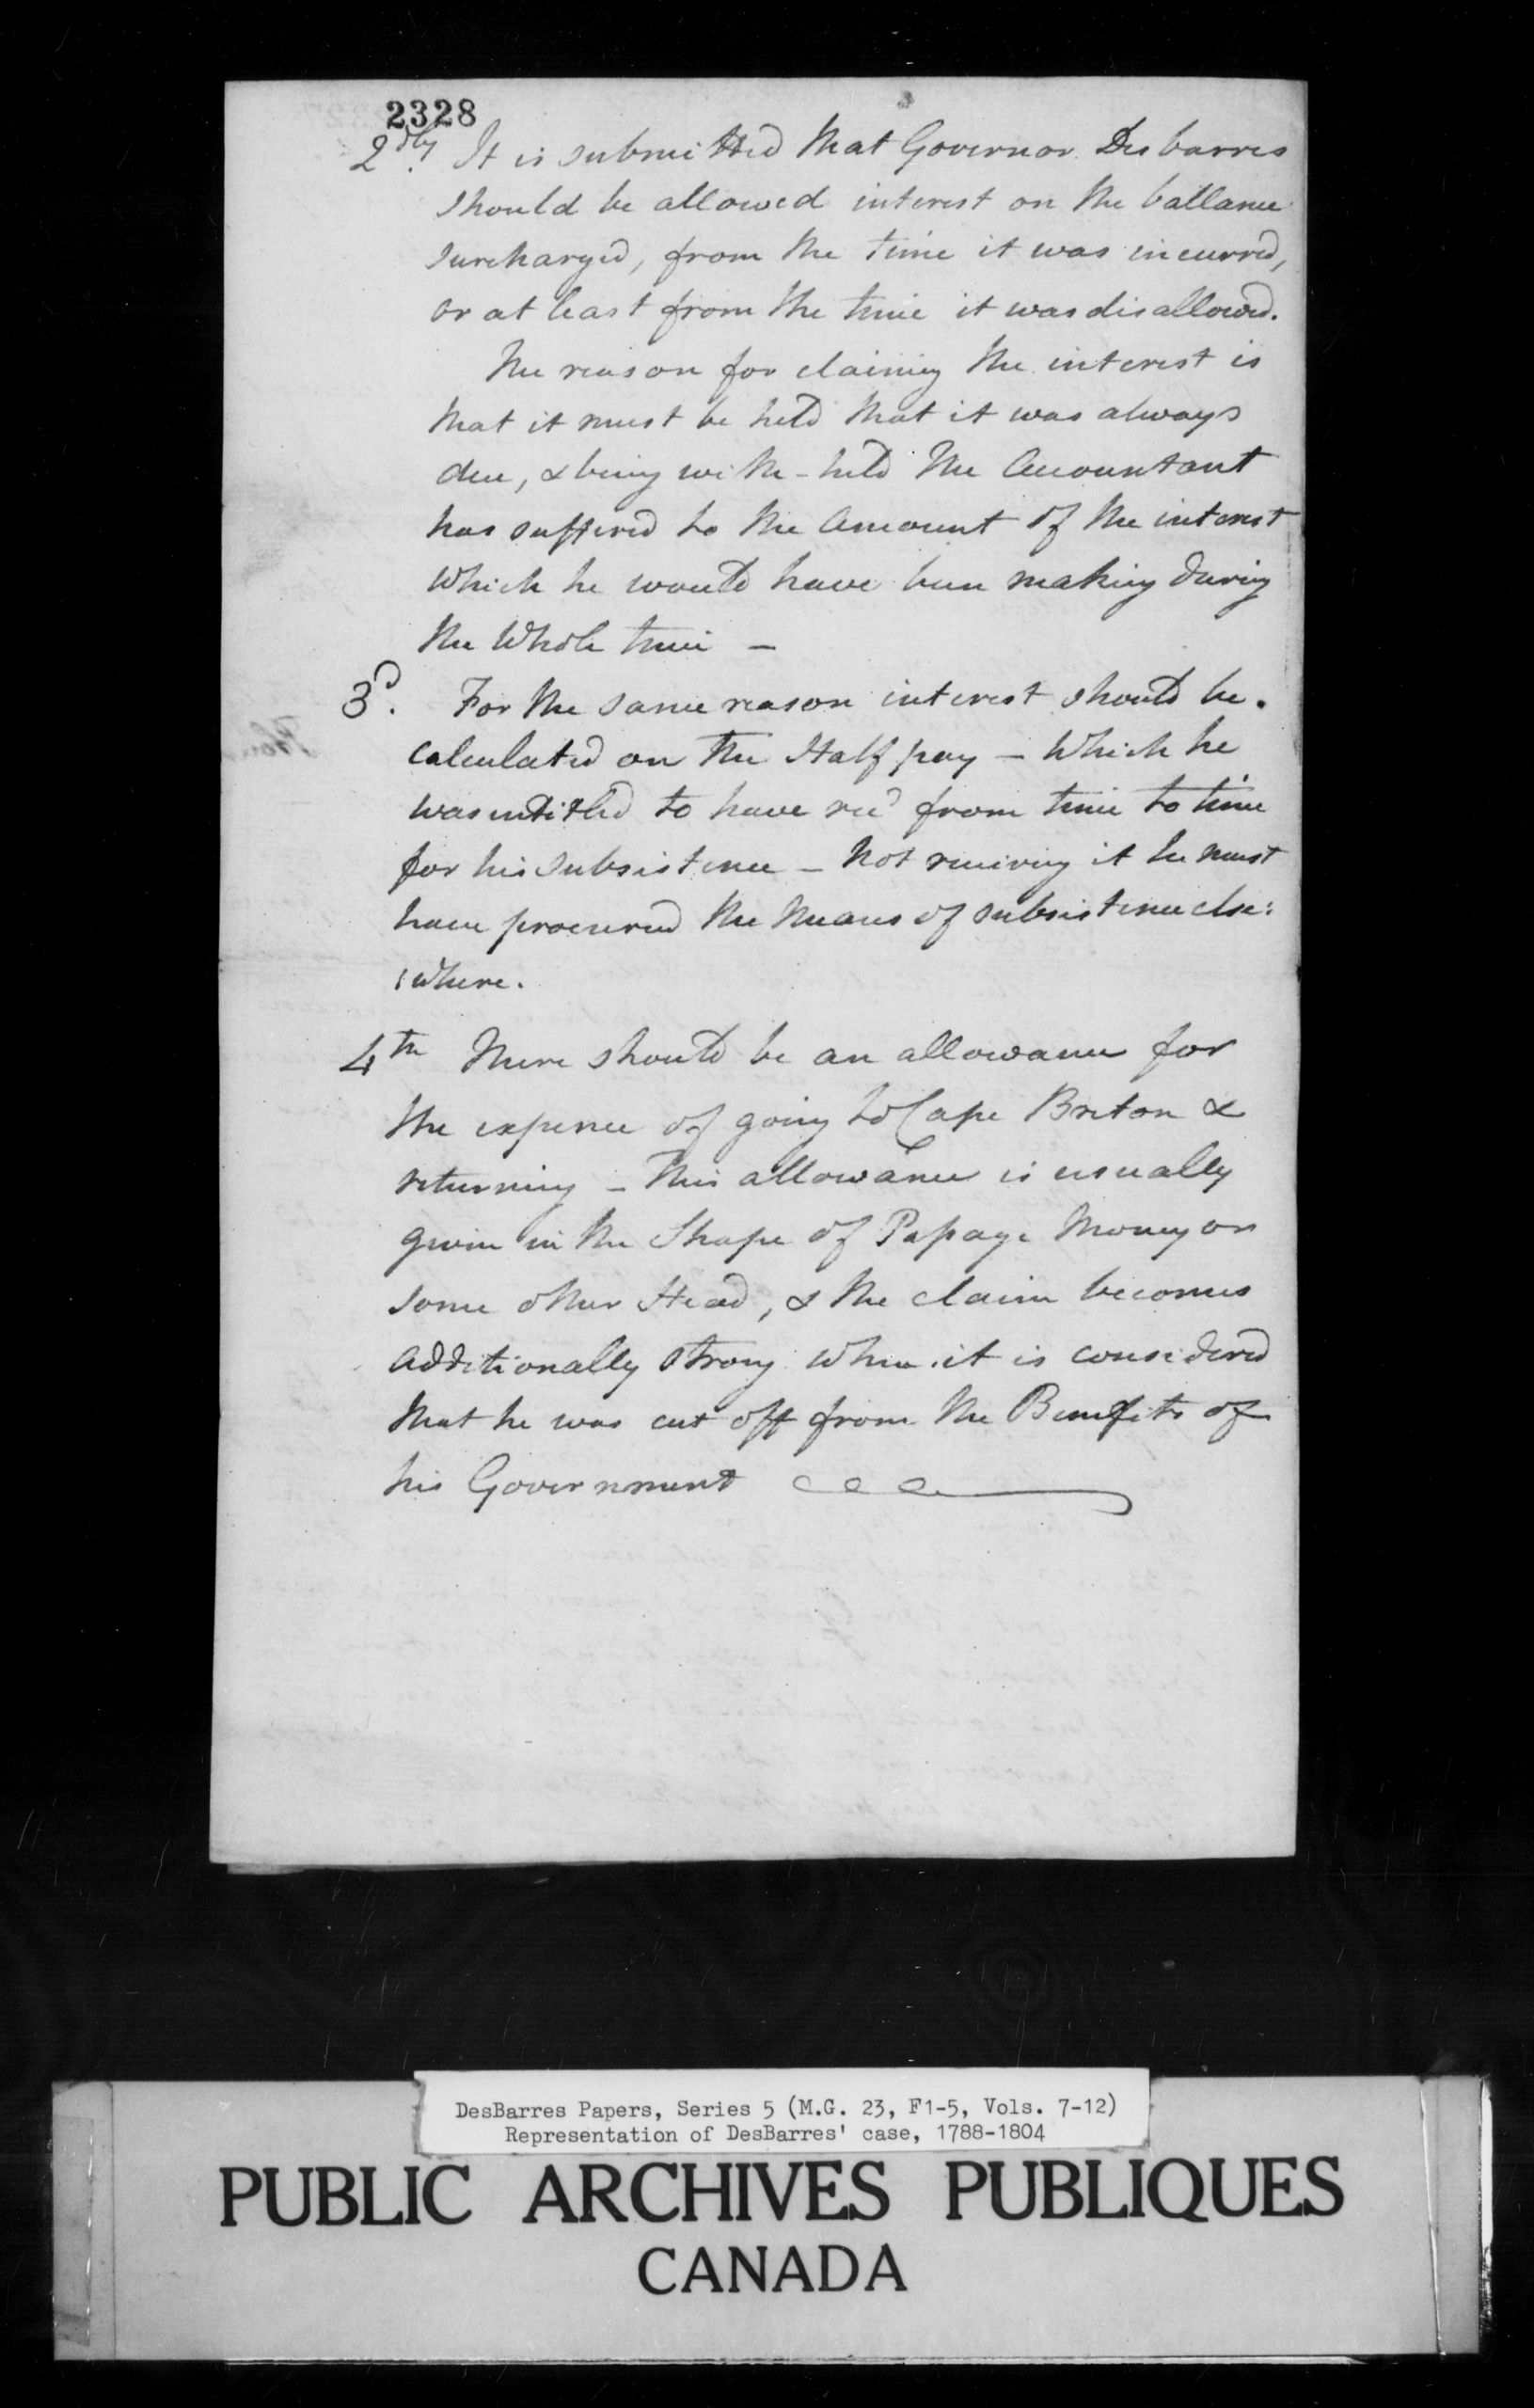 2328
2dly. It is submitted that Governor Desbarres
should be allowed interest on the ballance
surcharged, from the time it was incurred,
or at least from the time it was disallowed.
The reason for claiming the interest is
that it must be held that it was always
due, & being with-held the Accountant
has suffered to the Amount of the interest
which he would have been making during
the Whole time —
3d. For the same reason interest should be
calculated on the Half pay — Which he
was entitled to have recd from time to time
for his subsistence — Not receiving it he must
have procured the Means of subsistence else:
:where.
4th There should be an allowance for
the expence of going to Cape Breton &
returning — This allowance is usually
given in the Shape of Passage Money or
some other Head, & the claim becomes
additionally strong when it is considered
that he was cut off from the Benefits of
his Government
DesBarres Papers, Series 5 (M.G. 23, F1-5, Vols. 7-12)
Representation of DesBarres' case, 1788-1804
PUBLIC ARCHIVES PUBLIQUES
CANADA